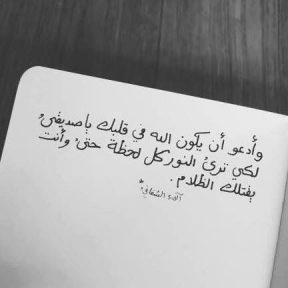 وأدعو أن يكون الله في قلبك ياصديقيُ
لكي ترىُ النور كل لحظة حتىُ وأنت
يقتلك الظلام.
آلاء الشعابي*